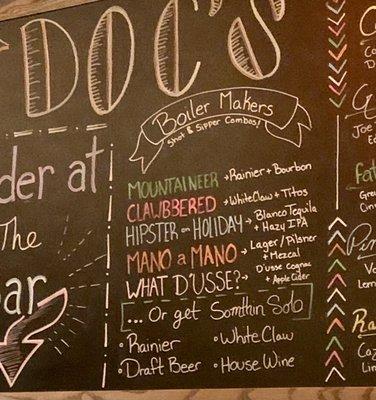 DOC'S
der at
The
ar
Boiler Makers
Shot & Sipper Combos!
MOUNTAINEER → Rainier + Bourbon
CLAWBBERED → White Claw + Titos
HIPSTER on HOLIDAY → Blanco Tequila
+ Hazy IPA
MANO a MANO → Lager/Pilsner
+ Mezcal
WHAT D'USSE? → D'usse Cognac
+ Apple Cider
... Or get Somthin Solo
• Rainier
• White Claw
• Draft Beer
• House Wine
Joe